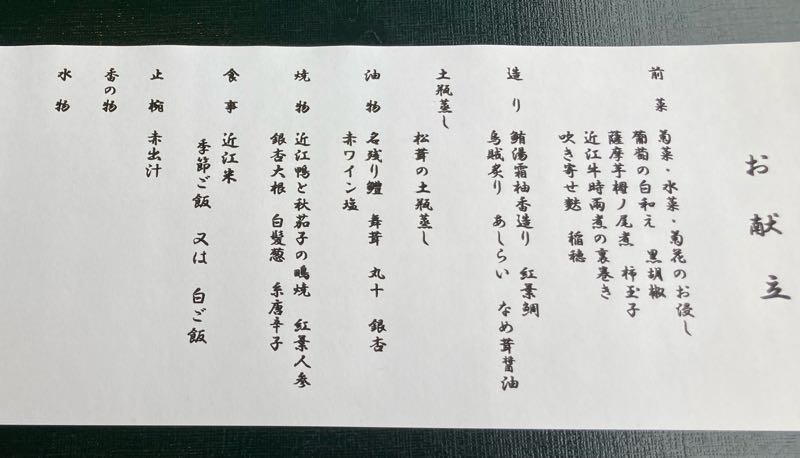 お献立
前菜　菊菜・水菜・菊花のお浸し
葡萄の白和え　黒胡椒
薩摩芋梔ノ尾煮　柿玉子
近江牛時雨煮の裏巻き
吹き寄せ麩　稲穂
造り　鮪湯霜柚香造り　紅葉鯛
烏賊炙り　あしらい　なめ茸醤油
土瓶蒸し
松茸の土瓶蒸し
油物　名残り鱧　舞茸　丸十　銀杏
赤ワイン塩
焼物　近江鴨と秋茄子の鴫焼　紅葉人参
銀杏大根　白髪葱　糸唐辛子
食事　近江米
季節ご飯　又は　白ご飯
止椀　赤出汁
香の物
水物